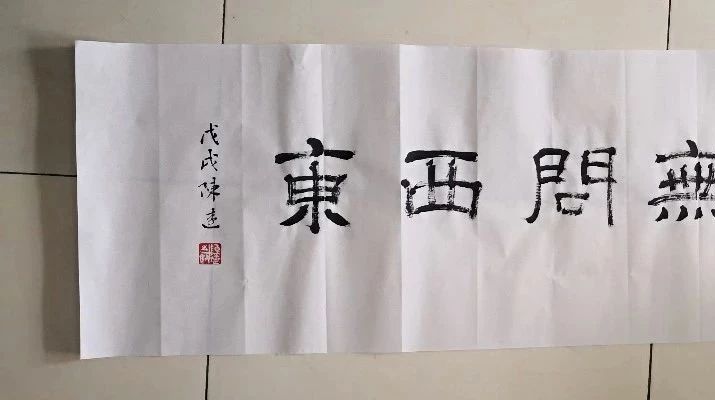 無問西東
戊戌陳遠